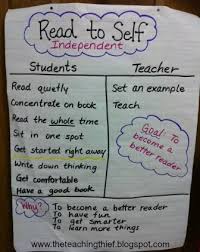 Read to Self
Independent
Students
Teacher
Read quietly
Concentrate on book
Read the whole time
Sit in one spot
Get started right away
Write down thinking
Get comfortable
Have a good book
Set an example
Teach
Goal: To
become a
better reader
Why?
To become a better reader
To have fun
To get smarter
To learn more things
www.theteachingthief.blogspot.com